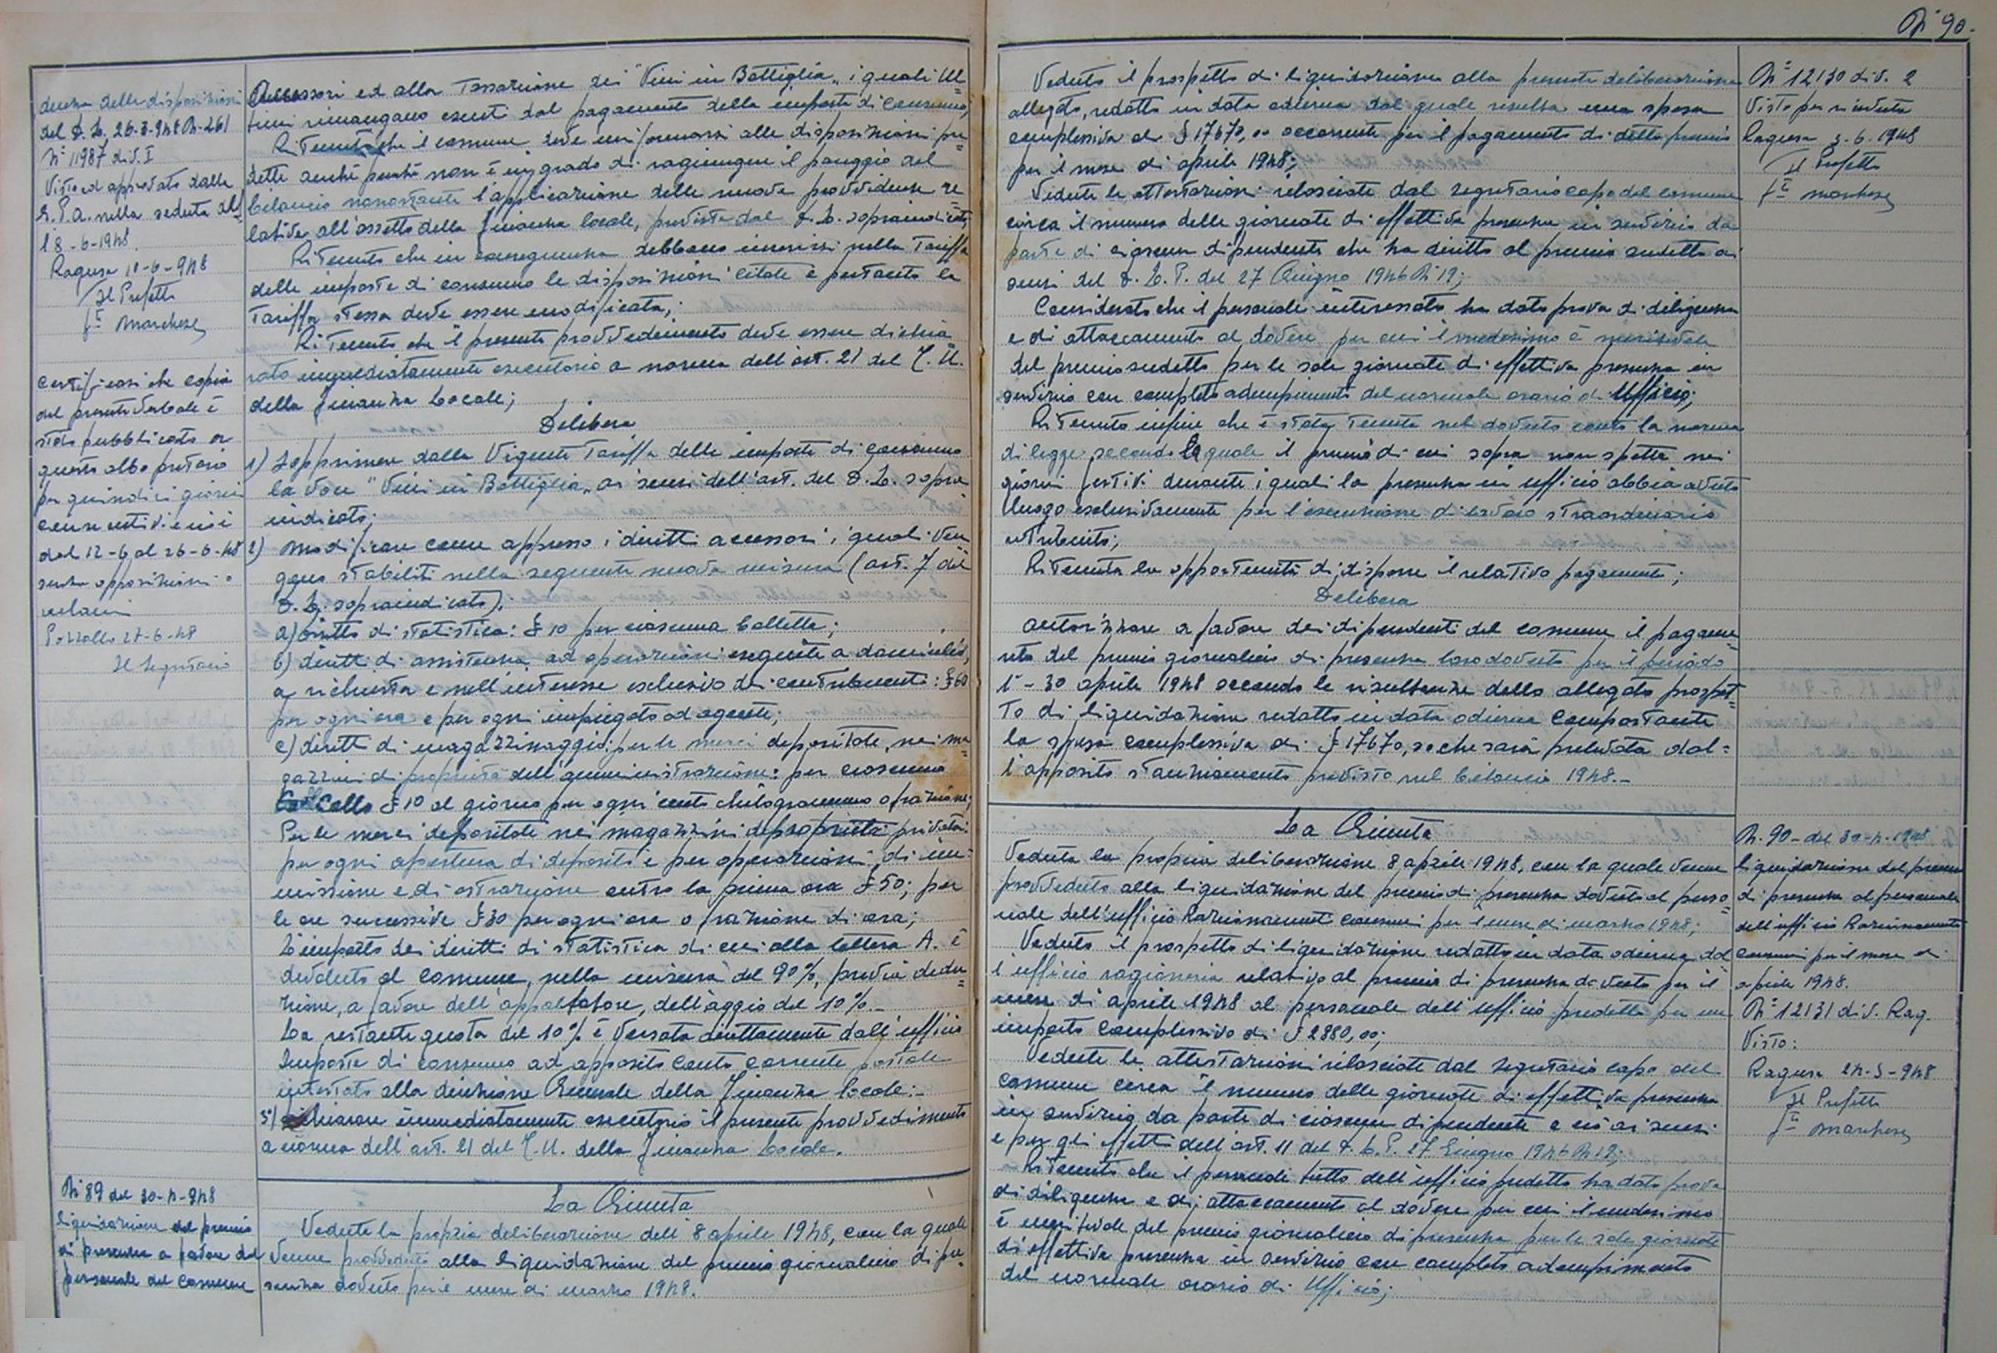 denza delle disposizioni
del D. L. 26-3-948 N-261
N° 11987 div. I
Visto ed approvato dalla
G. P. A. nella seduta del
18-6-1948.
Ragusa 18-6-948
Il Prefetto
fto Marchese
Certificasi che copia
del presente verbale è
stata pubblicata a
questo albo pretorio
per quindici giorni
consecutivi e cioè
dal 12-6 al 26-6-48
senza opposizioni o
reclami
Pozzallo 27-6-48
Il Segretario
N° 89 del 30-4-948
liquidazione del premio
di presenza a favore del
personale del Comune
Accessori ed alla Tassazione dei "Vini in Bottiglia„ i quali ul=
timi rimangano esenti dal pagamento della imposta di consumo;
Ritenuto che il comune deve uniformarsi alle disposizioni pre=
dette anche perchè non è in grado di raggiungere il pareggio del
bilancio nonostante l'applicazione delle nuove provvidenze re=
lative all'assetto della finanza locale, previste dal D. L. sopraindicato
Ritenuto che in conseguenza debbano inserirsi nella Tariffa
delle imposte di consumo le disposizioni citate e pertanto la
Tariffa stessa deve essere modificata;
Ritenuto che il presente provvedimento deve essere dichia
rato immediatamente esecutorio a norma dell'art. 21 del T. U.
della finanza locale;
Delibera
1) Sopprimere dalla Vigente Tariffa delle imposte di consumo
la voce "Vini in Bottiglia„ ai sensi dell'art. del D. L. sopra
indicato;
2) Modificare come appresso i diritti accessori i quali ven
gono stabiliti nella seguente nuova misura (art. 7 del
D. L. sopraindicato).
a) diritto di statistica: £ 10 per ciascuna bolletta;
b) diritti di assistenza ad operazioni eseguite a domicilio,
a richiesta e nell'interesse esclusivo dei contribuenti: £ 60
per ogni ora e per ogni impiegato od agente;
c) diritti di magazzinaggio: per le merci depositate nei ma
gazzini di proprietà dell'amministrazione: per ciascuno
Collo £ 10 al giorno per ogni cento chilogrammo o frazione;
Per le merci depositate nei magazzini di proprietà privata:
per ogni apertura di deposito e per operazioni di im=
missione e di estrazione entro la prima ora £ 50; per
le ore successive £ 30 per ogni ora o frazione di ora;
L'importo dei diritti di statistica di cui alla lettera A. è
devoluto al comune, nella misura del 90%, previa dedu=
zione, a favore dell'appaltatore, dell'aggio del 10%.-
La restante quota del 10% è versata direttamente dall'ufficio
Imposte di consumo ad apposito conto corrente postale
intestato alla direzione Generale della Finanza locale.-
3°) dichiarare immediatamente esecutorio il presente provvedimento
a norma dell'art. 21 del T. U. della finanza locale.
La Giunta
Veduta la propria deliberazione dell'8 aprile 1948, con la quale
venne provveduto alla liquidazione del premio giornaliero di pre=
senza dovuto per il mese di marzo 1948.
N° 90.
Veduto il prospetto di liquidazione alla presente deliberazione
allegato, redatto in data odierna dal quale risulta una spesa
complessiva di £ 17670,00 occorrente per il pagamento di detto premio
per il mese di aprile 1948;
Vedute le attestazioni rilasciate dal segretario capo del comune
circa il numero delle giornate di effettiva presenza in servizio da
parte di ciascun dipendente che ha diritto al premio anzidetto ai
sensi del D. L. P. del 27 Giugno 1946 N 19;
Considerato che il personale interessato ha dato prova di diligenza
e di attaccamento al dovere per cui il medesimo è meritevole
del premio suddetto per le sole giornate di effettiva presenza in
servizio con completo adempimento del normale orario di Ufficio;
Ritenuto infine che è stata tenuta nel dovuto conto la norma
di legge secondo la quale il premio di cui sopra non spetta nei
giorni festivi durante i quali la presenza in ufficio abbia avuto
luogo esclusivamente per l'esecuzione di lavoro straordinario
retribuito;
Ritenuta la opportunità di disporre il relativo pagamento;
Delibera
autorizzare a favore dei dipendenti del comune il pagame=
nto del premio giornaliero di presenza loro dovuto per il periodo
1°-30 aprile 1948 secondo le risultanze dello allegato prospet=
to di liquidazione redatto in data odierna comportante
la spesa complessiva di £ 17670,00 che sarà prelevata dal=
l'apposito stanziamento previsto nel bilancio 1948.-
La Giunta
Veduta la propria deliberazione 8 aprile 1948, con la quale venne
provveduto alla liquidazione del premio di presenza dovuto al perso=
nale dell'ufficio Razionamento consumi per il mese di marzo 1948;
Veduto il prospetto di liquidazione redatto in data odierna dal
l'ufficio ragioneria relativo al premio di presenza dovuto per il
mese di aprile 1948 al personale dell'ufficio predetto per un
importo complessivo di £ 2880,00;
Vedute le attestazioni rilasciate dal segretario capo del
comune circa il numero delle giornate di effettiva presenza
in servizio da parte di ciascun dipendente e ciò ai sensi
e per gli effetti dell'art. 11 del D. L. P. 27 Giugno 1946 N 19;
Ritenuto che il personale tutto dell'ufficio predetto ha dato prova
di diligenza e di attaccamento al dovere per cui il medesimo
è meritevole del premio giornaliero di presenza per le sole giornate
di effettiva presenza in servizio con completo adempimento
del normale orario di Ufficio;
N° 12130 div. 2
Visto per ricevuta
Ragusa 3-6-1948
Il Prefetto
fto Marchese
N. 90 - del 30-4-1948
liquidazione del premio
di presenza al personale
dell'ufficio Razionamento
consumi per il mese di
aprile 1948.
N° 12131 div. Rag.
Visto:
Ragusa 24-5-948
Il Prefetto
fto Marchese